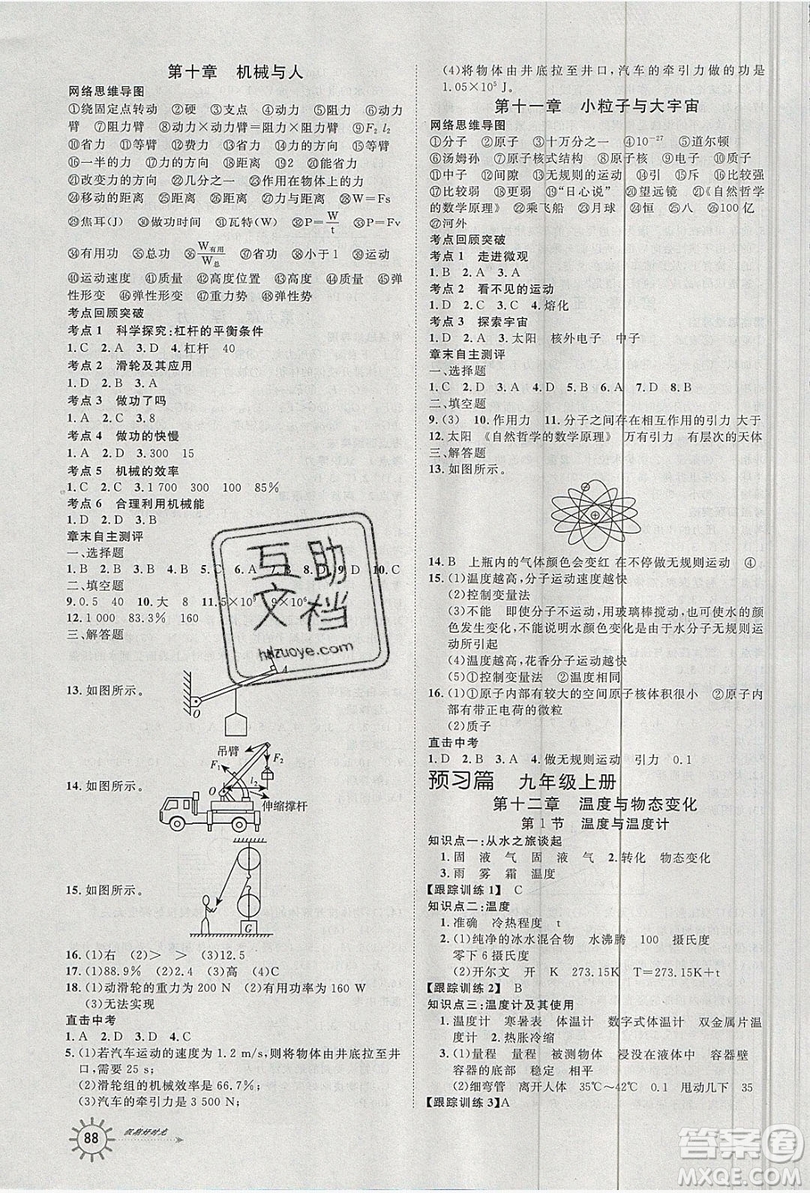 第十章 机械与人
网络思维导图
①绕固定点转动 ②硬 ③支点 ④动力 ⑤阻
力 ⑦阻力臂 ⑧动力×动力臂=阻力×阻力臂 ⑨F₂ l₂
⑩省力 ⑪等臂 ⑫费力 ⑬力的方向 ⑭等臂 ⑮力
⑯一半的力 ⑰力的方向 ⑱距离 ⑲2 ⑳距离
㉑改变力的方向 ㉒几分之一 ㉓作用在物体上的力
㉔移动的距离 ㉕力 ㉖距离 ㉗力的方向 ㉘W=Fs
㉙焦耳(J) ㉚做功时间 ㉛瓦特(W) ㉜P=W/t ㉝P=Fv
㉞有用功 ㉟总功 ㊱W有用/W总 ㊲省功 ㊳小于1 ㊴质量
㊵运动速度 ㊶质量 ㊷高度位置 ㊸质量 ㊹高度 ㊺弹
性形变 ㊻弹性形变 ㊼重力势能 ㊽弹性势能
考点回顾突破
考点1 科学探究:杠杆的平衡条件
1.C 2.A 3.D 4.杠杆 40
考点2 滑轮及其应用
1.D 2.D
考点3 做功了吗
1.A 2.C 3.8
考点4 做功的快慢
1.A 2.D 3.300 15
考点5 机械的效率
1.C 2.C 3.1 700 300 100 85%
考点6 合理利用机械能
1.D 2.B 3.C
章末自主测评
一、选择题
1.B 2.B 3.C 4.B 5.A 6.C
二、填空题
9.0.5 40 10.大 8
12.1 000 83.3% 160
三、解答题
13.如图所示。
O
A
14.如图所示。
吊臂
F₁
F₂
O
伸缩撑杆
15.如图所示。
G
16.(1)右 (2)> > (3)12.5
17.(1)88.9% (2)2.4 (3)高 (4)C
18.(1)动滑轮的重力为200 N (2)有用功率为160 W
(3)无法实现
直击中考
1.A 2.D 3.D 4.C
5.(1)若汽车运动的速度为1.2 m/s,则将物体由井底拉至井
口,需要25 s;
(2)滑轮组的机械效率为66.7%;
(3)汽车的牵引力为
88
假期好时光
(4)将物体由井底拉至井口,汽车的牵引力做的功是
1.05×10⁵ J。
第十一章 小粒子与大宇宙
网络思维导图
①分子 ②原子 ③十万分之一 ④10⁻²⁷ ⑤道尔顿
⑥汤姆孙 ⑦原子核式结构 ⑧原子 ⑨原子核 ⑩质子
⑪中子 ⑫间隙 ⑬无规则的运动 ⑭引力 ⑮斥力 ⑯强
⑰比较弱 ⑱更弱 ⑲“日心说” ⑳望远镜 ㉑《自然哲学
的数学原理》 ㉒乘飞船 ㉓月球 ㉔恒 ㉕八 ㉖100亿
㉗河外
考点回顾突破
考点1 走进微观
1.B 2.A 3.A
考点2 看不见的运动
1.D 2.C 3.C 4.熔化
考点3 探索宇宙
1.D 2.B 3.A 4.太阳 核外电子 中子
章末自主测评
一、选择题
1.C 2.C 3.D 4.B 5.A 6.A 7.B 8.D
二、填空题
9.(3) 10.作用力 11.分子之间存在相互作用的引力 大于
12.太阳 《自然哲学的数学原理》 万有引力 有层次的天体
三、解答题
13.如图所示。
14.B 上瓶内的气体颜色会变红 在不停做无规则运动 ④
15.(1)温度越高,分子运动速度越快
(2)控制变量法
(3)不能 即使不用手搅动,用玻璃棒搅动,也可以使水的颜
色发生改变,不能说明水分子在运动是由于水分子无规则运
动所引起的
(4)温度越高,花香分子运动越快
(5)①控制变量法 ②温度越高
16.(1)①原子内部有较大的空间原子核体积很小 ②原子内
部有带正电荷的微粒
(2)质子
直击中考
1.D 2.B 3.A 4.做无规则运动 引力 0.1
预习篇 九年级上册
第十二章 温度与物态变化
第1节 温度与温度计
知识点一:从水之旅谈起
1.固 液 气 固 液 气 2.转化 物态变化
3.雨 雾 霜 温度
【跟踪训练1】 C
知识点二:温度
1.准确 冷热程度 t
2.(1)纯净的冰水混合物 水沸腾 100 摄氏度
零下6摄氏度
(2)开尔文 开 K T=273K+t
【跟踪训练2】 B
知识点三:温度计及其使用
1.温度计 寒暑表 体温计 数字式体温计 双金属片温
度计 2.热胀冷缩
3.(1)量程 量程 被测物体 浸没在液体 容器壁
容器的底部 稳定 相平
(2)细弯管 离开人体 35℃~42℃ 0.1 甩动几下 35
【跟踪训练3】A
互助文档
hdzuoye.com
答案圈
MXQE.COM